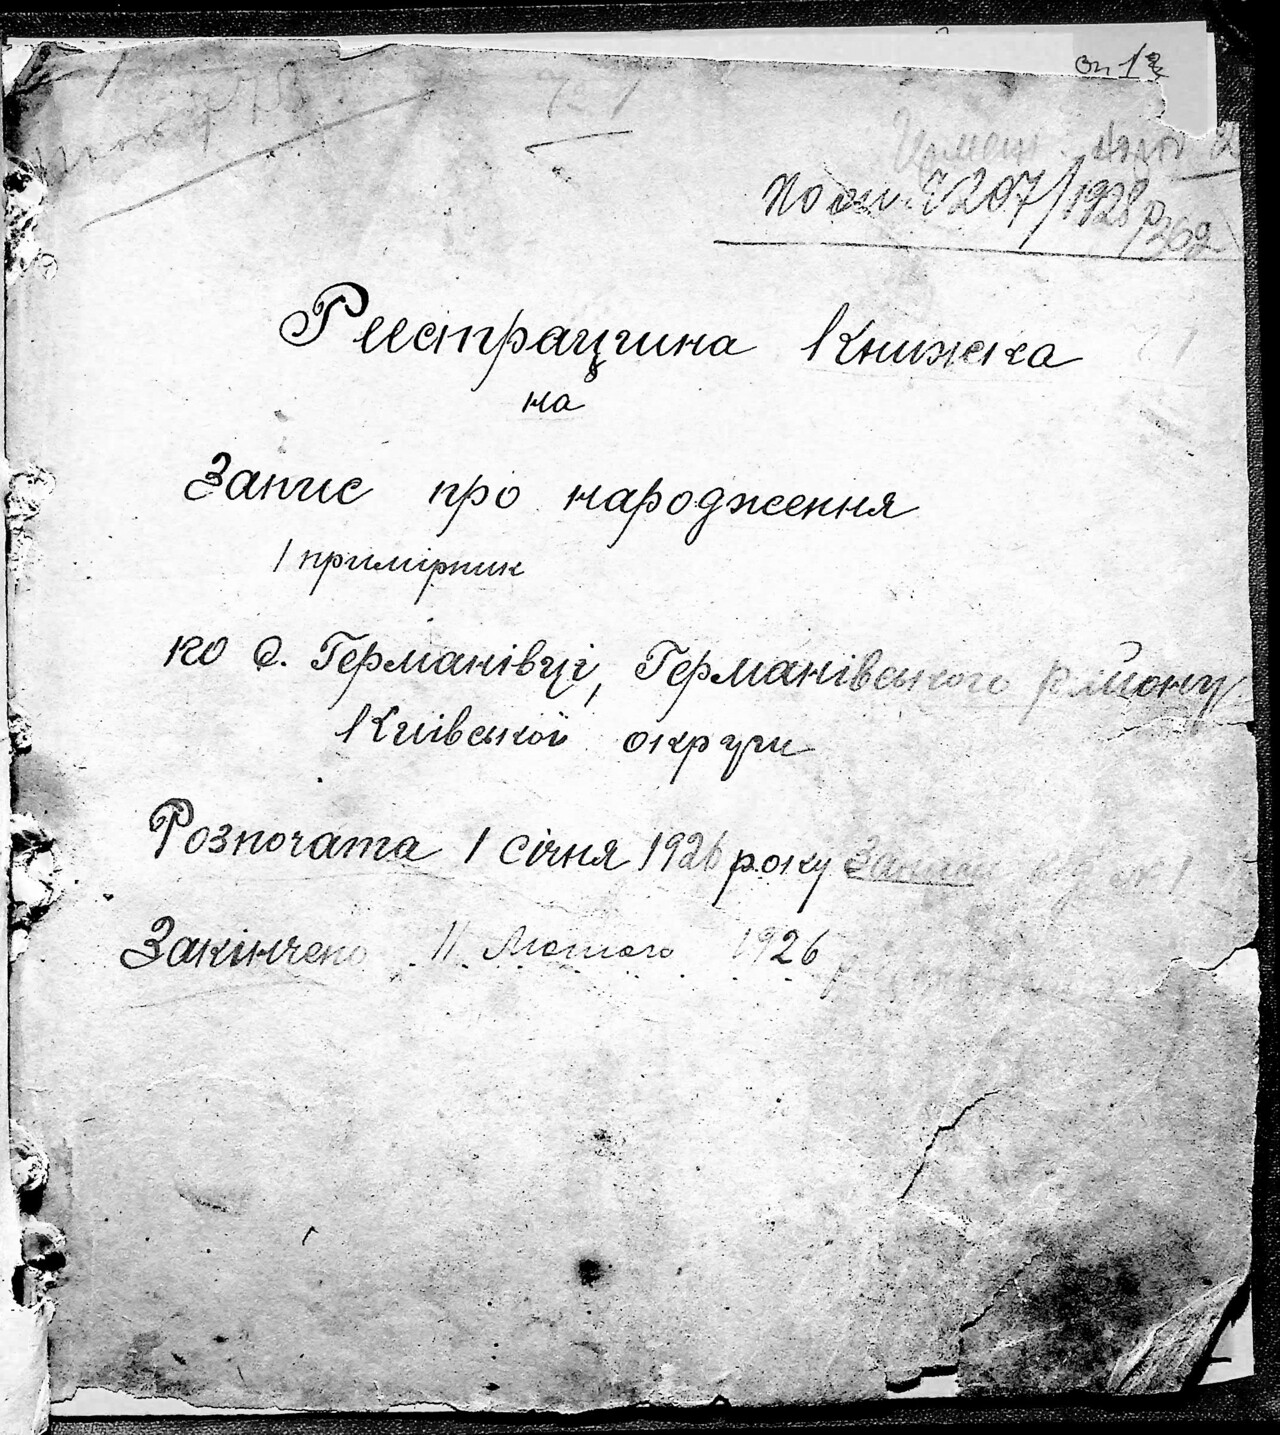 оп 1
7207/1928 р
Реєстраційна Книжка
на
Запис про народження
1 примірник
по с. Германівці, Германівського району
Київської округи
Розпочата 1 січня 1926 року
Закінчено 11 Лютого 1926